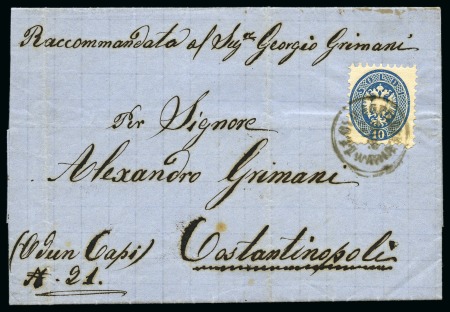 Raccommandata al Sigre Georgio Grimani
Per Signore
Alexandro Grimani
(Odun Capi)
Costantinopoli
N. 21.
10